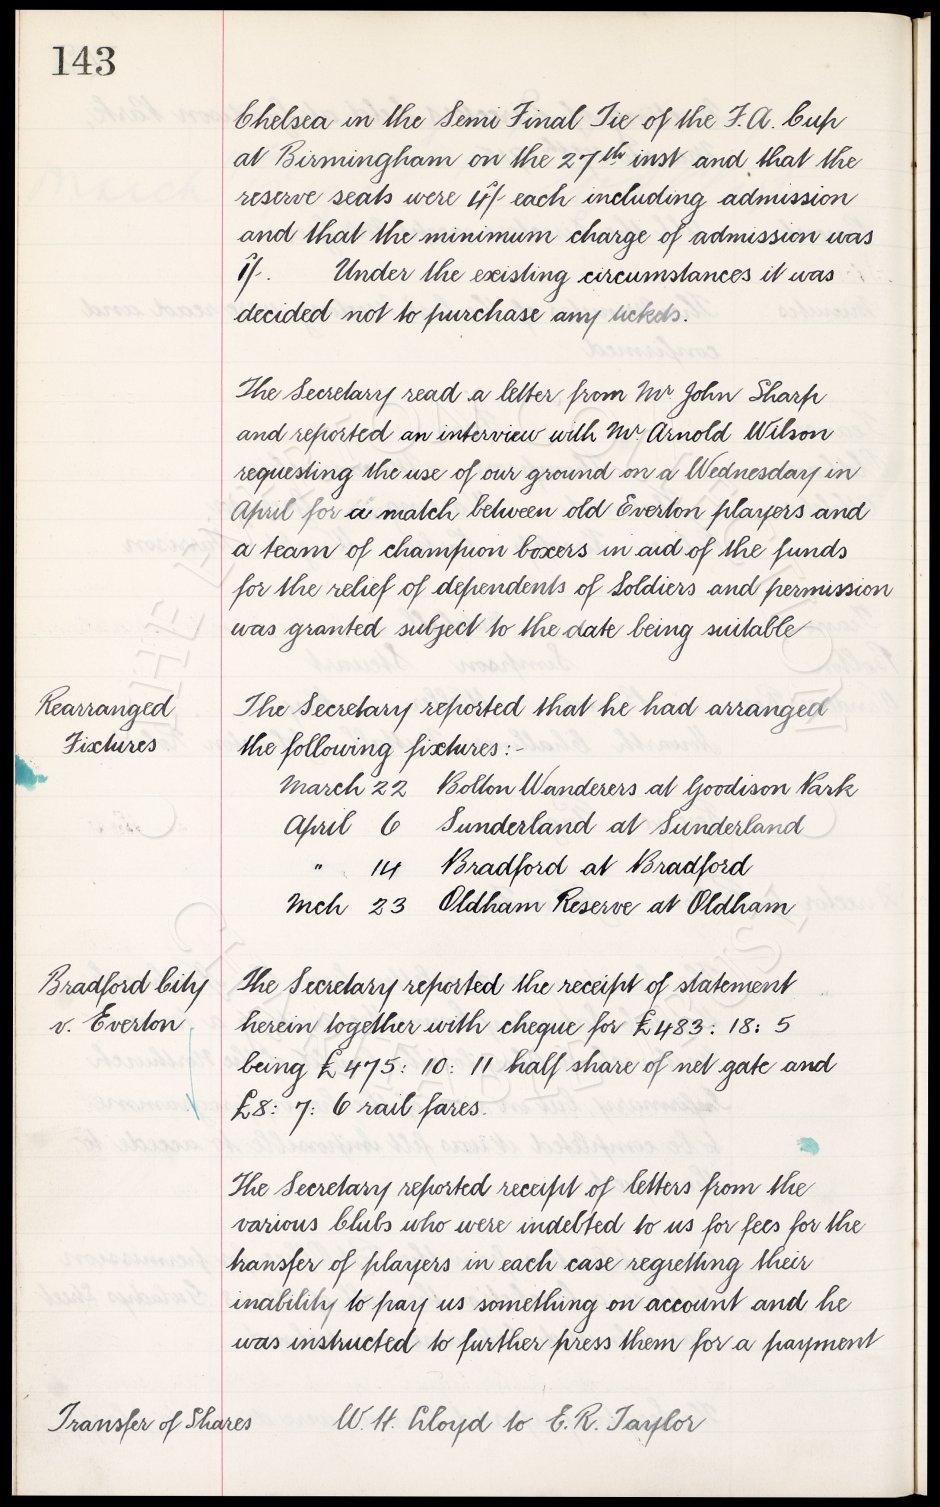 143
Chelsea in the Semi Final Tie of the F.A. Cup
at Birmingham on the 27th inst and that the
reserve seats were 4/- each including admission
and that the minimum charge of admission was
1/-. Under the existing circumstances it was
decided not to purchase any tickets.
The Secretary read a letter from Mr John Sharp
and reported an interview with Mr Arnold Wilson
requesting the use of our ground on a Wednesday in
April for a match between old Everton players and
a team of champion boxers in aid of the funds
for the relief of dependents of Soldiers and permission
was granted subject to the date being suitable
Rearranged
Fixtures
The Secretary reported that he had arranged
the following fixtures:-
March 22 Bolton Wanderers at Goodison Park
April 6 Sunderland at Sunderland
" 14 Bradford at Bradford
Mch 23 Oldham Reserve at Oldham
Bradford City
v. Everton
The Secretary reported the receipt of statement
herein together with cheque for £483: 18: 5
being £475: 10: 11 half share of net gate and
£8: 7: 6 rail fares.
The Secretary reported receipt of letters from the
various Clubs who were indebted to us for fees for the
transfer of players in each case regretting their
inability to pay us something on account and he
was instructed to further press them for a payment
Transfer of Shares W. H. Lloyd to E. R. Taylor